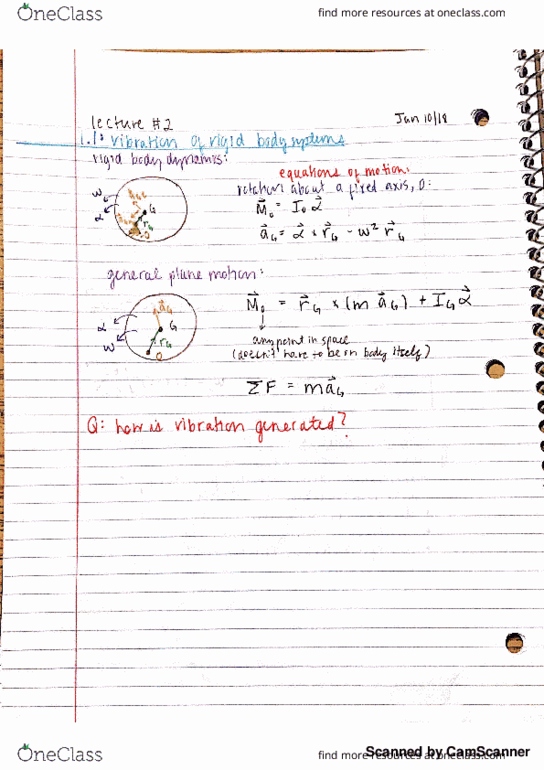 OneClass
find more resources at oneclass.com
lecture #2
Jan 10/18
1.1: vibration of rigid body systems
rigid body dynamics:
equations of motion:
rotation about a fixed axis, O:
M⃗₀ = I₀ α⃗
a⃗G = α⃗ × r⃗G - w² r⃗G
w
α
G
rG
O
general plane motion:
M⃗₀ = r⃗G × (m a⃗G) + IG α⃗
any point in space
(doesn't have to be on body itself)
α
w
a⃗G
G
rG
O
ΣF = ma⃗G
Q: how is vibration generated?
OneClass
find more resources at oneclass.com
Scanned by CamScanner